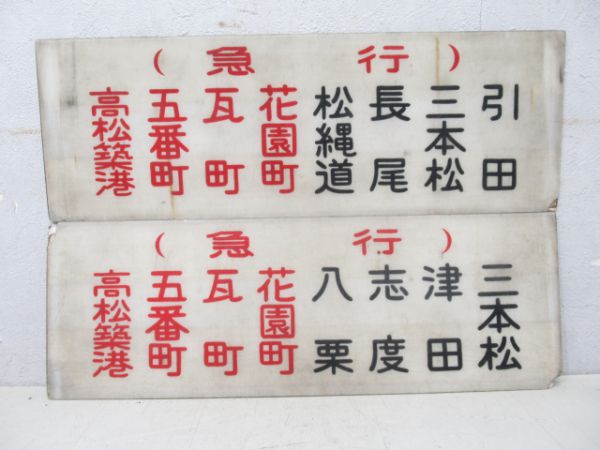 （急行）
引田
三本松
長尾
松縄道
花園町
瓦町
五番町
高松築港
（急行）
三本松
津田
志度
八栗
花園町
瓦町
五番町
高松築港